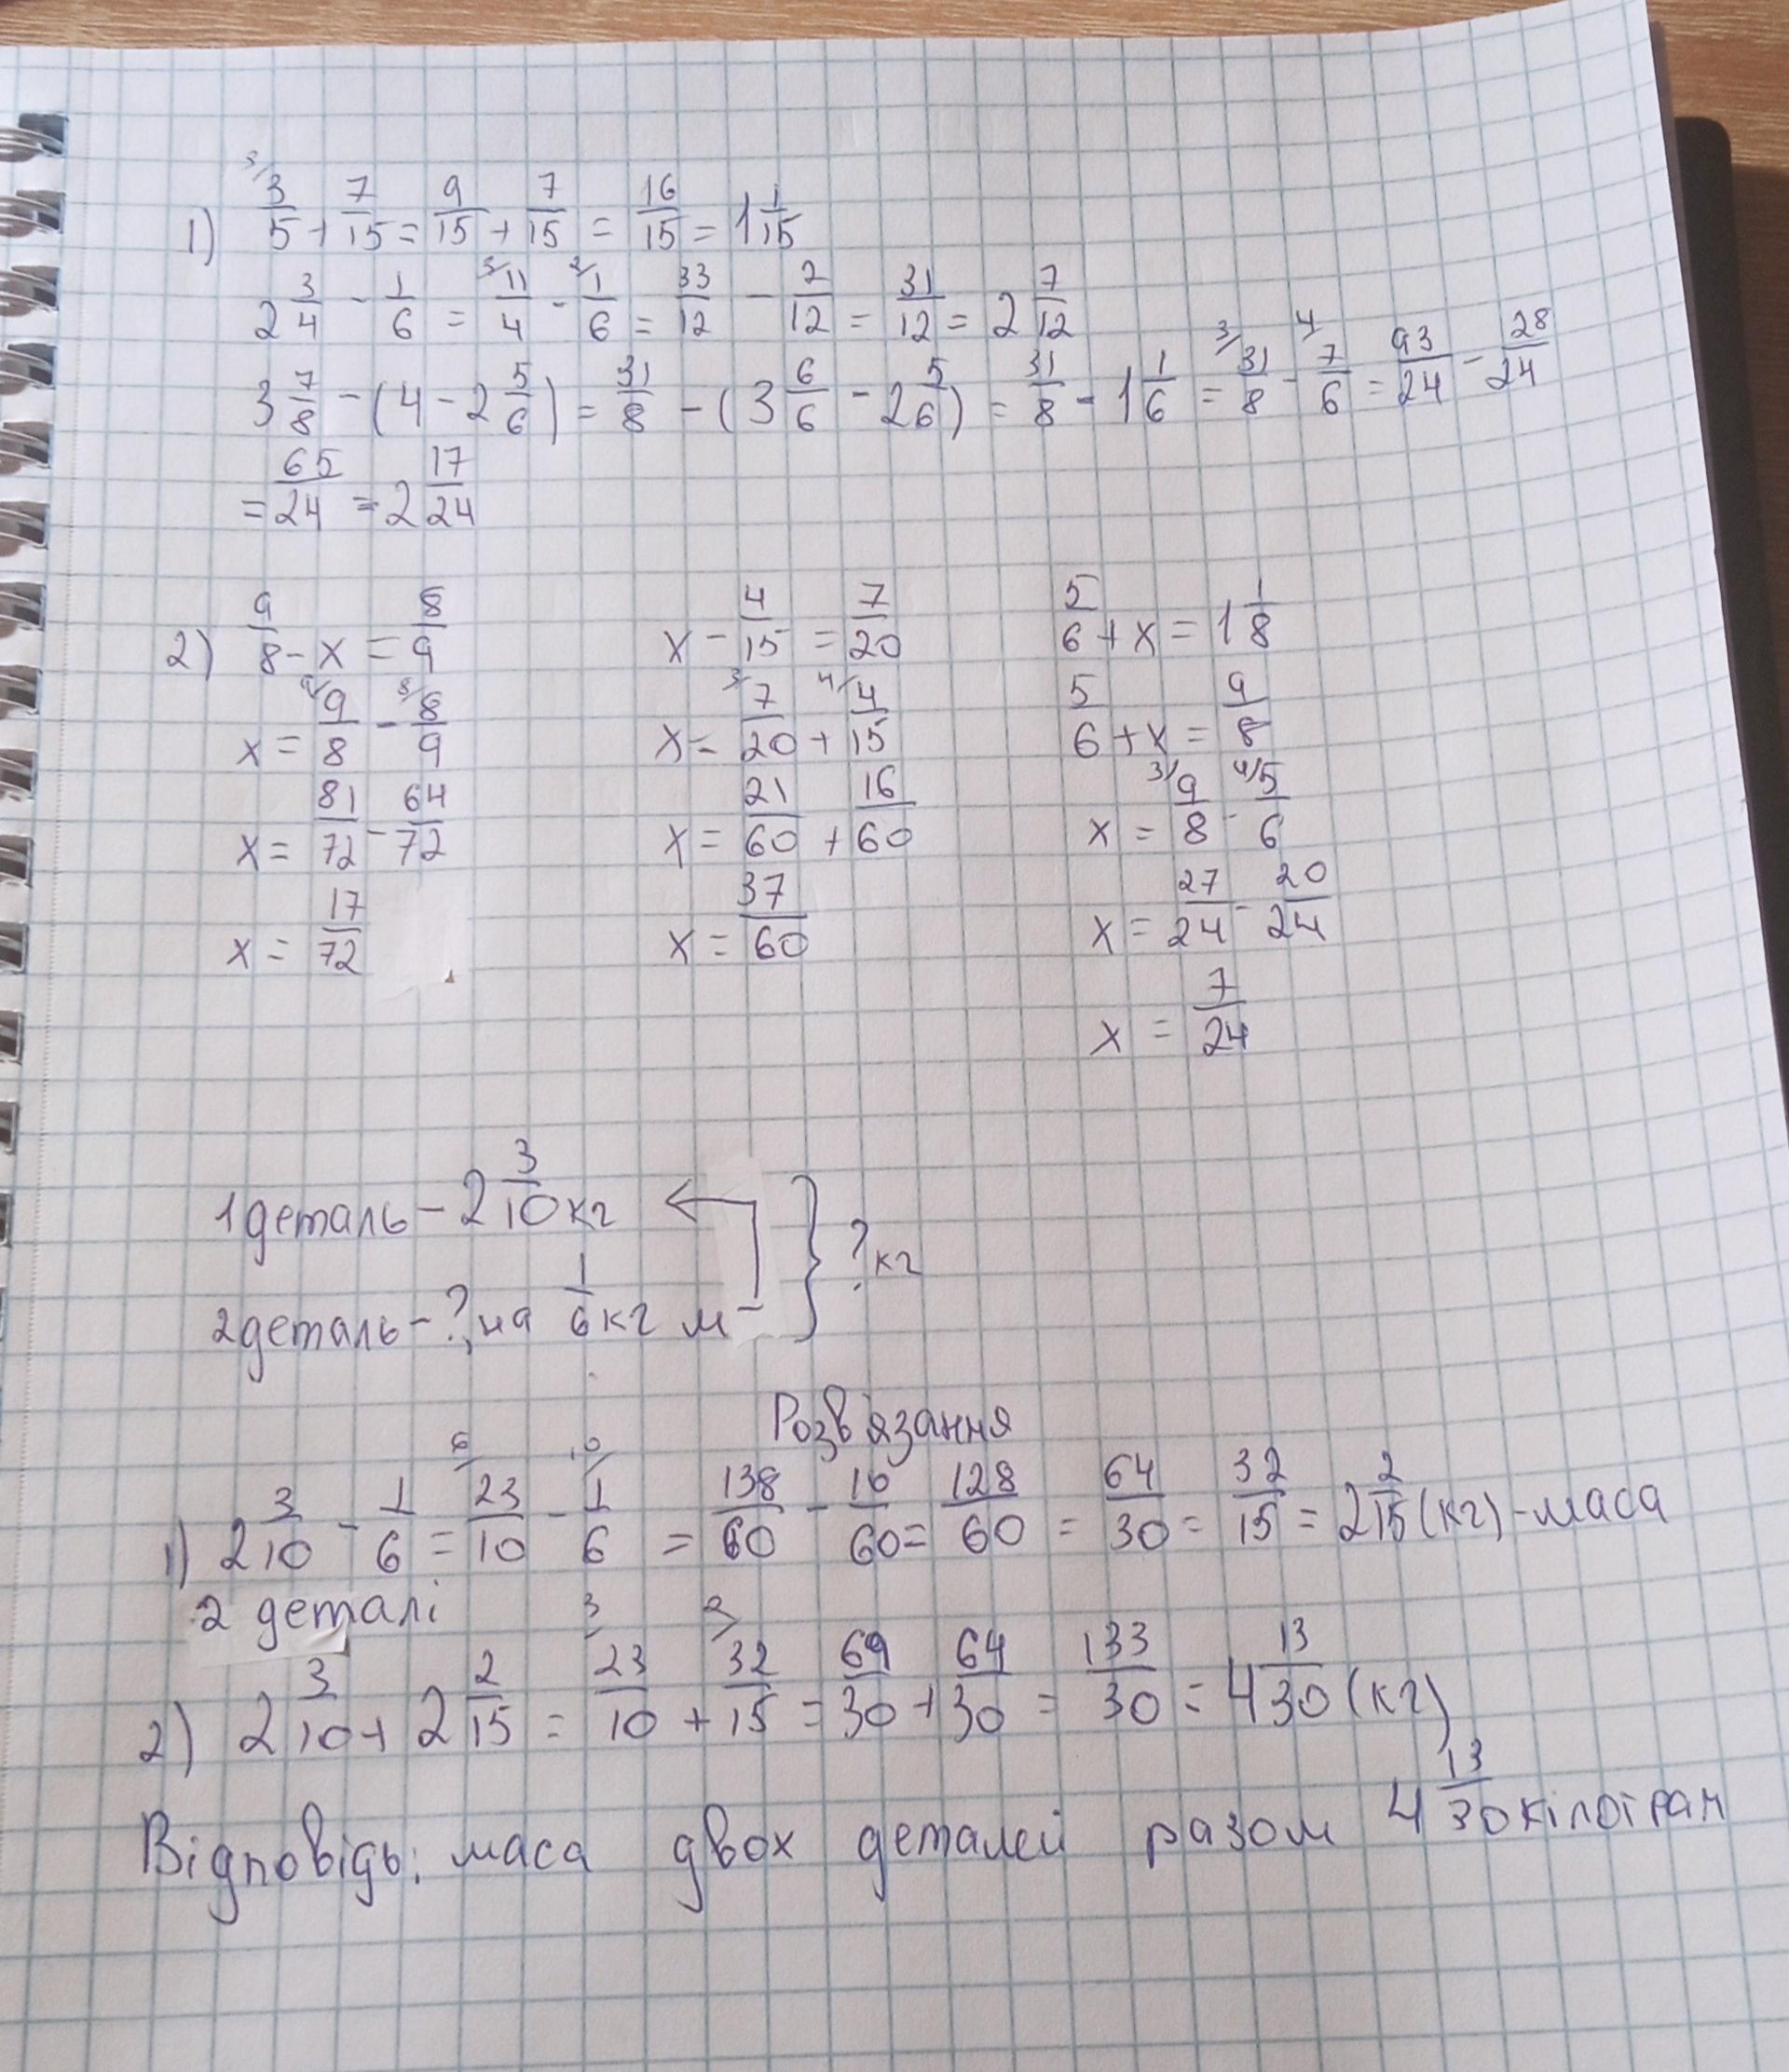 1) 3/ 3/5 + 7/15 = 9/15 + 7/15 = 16/15 = 1 1/15
2 3/4 - 1/6 = 3/ 11/4 - 2/ 1/6 = 33/12 - 2/12 = 31/12 = 2 7/12
3 7/8 - (4 - 2 5/6) = 31/8 - (3 6/6 - 2 5/6) = 31/8 - 1 1/6 = 3/ 31/8 - 4/ 7/6 = 93/24 - 28/24
= 65/24 = 2 17/24
2) 9/8 - x = 8/9
x = 9/ 9/8 - 8/ 8/9
x = 81/72 - 64/72
x = 17/72
x - 4/15 = 7/20
x = 3/ 7/20 + 4/ 4/15
x = 21/60 + 16/60
x = 37/60
5/6 + x = 1 1/8
5/6 + x = 9/8
x = 3/ 9/8 - 4/ 5/6
x = 27/24 - 20/24
x = 7/24
1 деталь - 2 3/10 кг
2 деталь - ?, на 1/6 кг м
? кг
Розв'язання
1) 2 3/10 - 1/6 = 6/ 23/10 - 10/ 1/6 = 138/60 - 10/60 = 128/60 = 64/30 = 32/15 = 2 2/15 (кг) - маса
2 деталі
2) 2 3/10 + 2 2/15 = 3/ 23/10 + 2/ 32/15 = 69/30 + 64/30 = 133/30 = 4 13/30 (кг)
Відповідь: маса двох деталей разом 4 13/30 кілограм